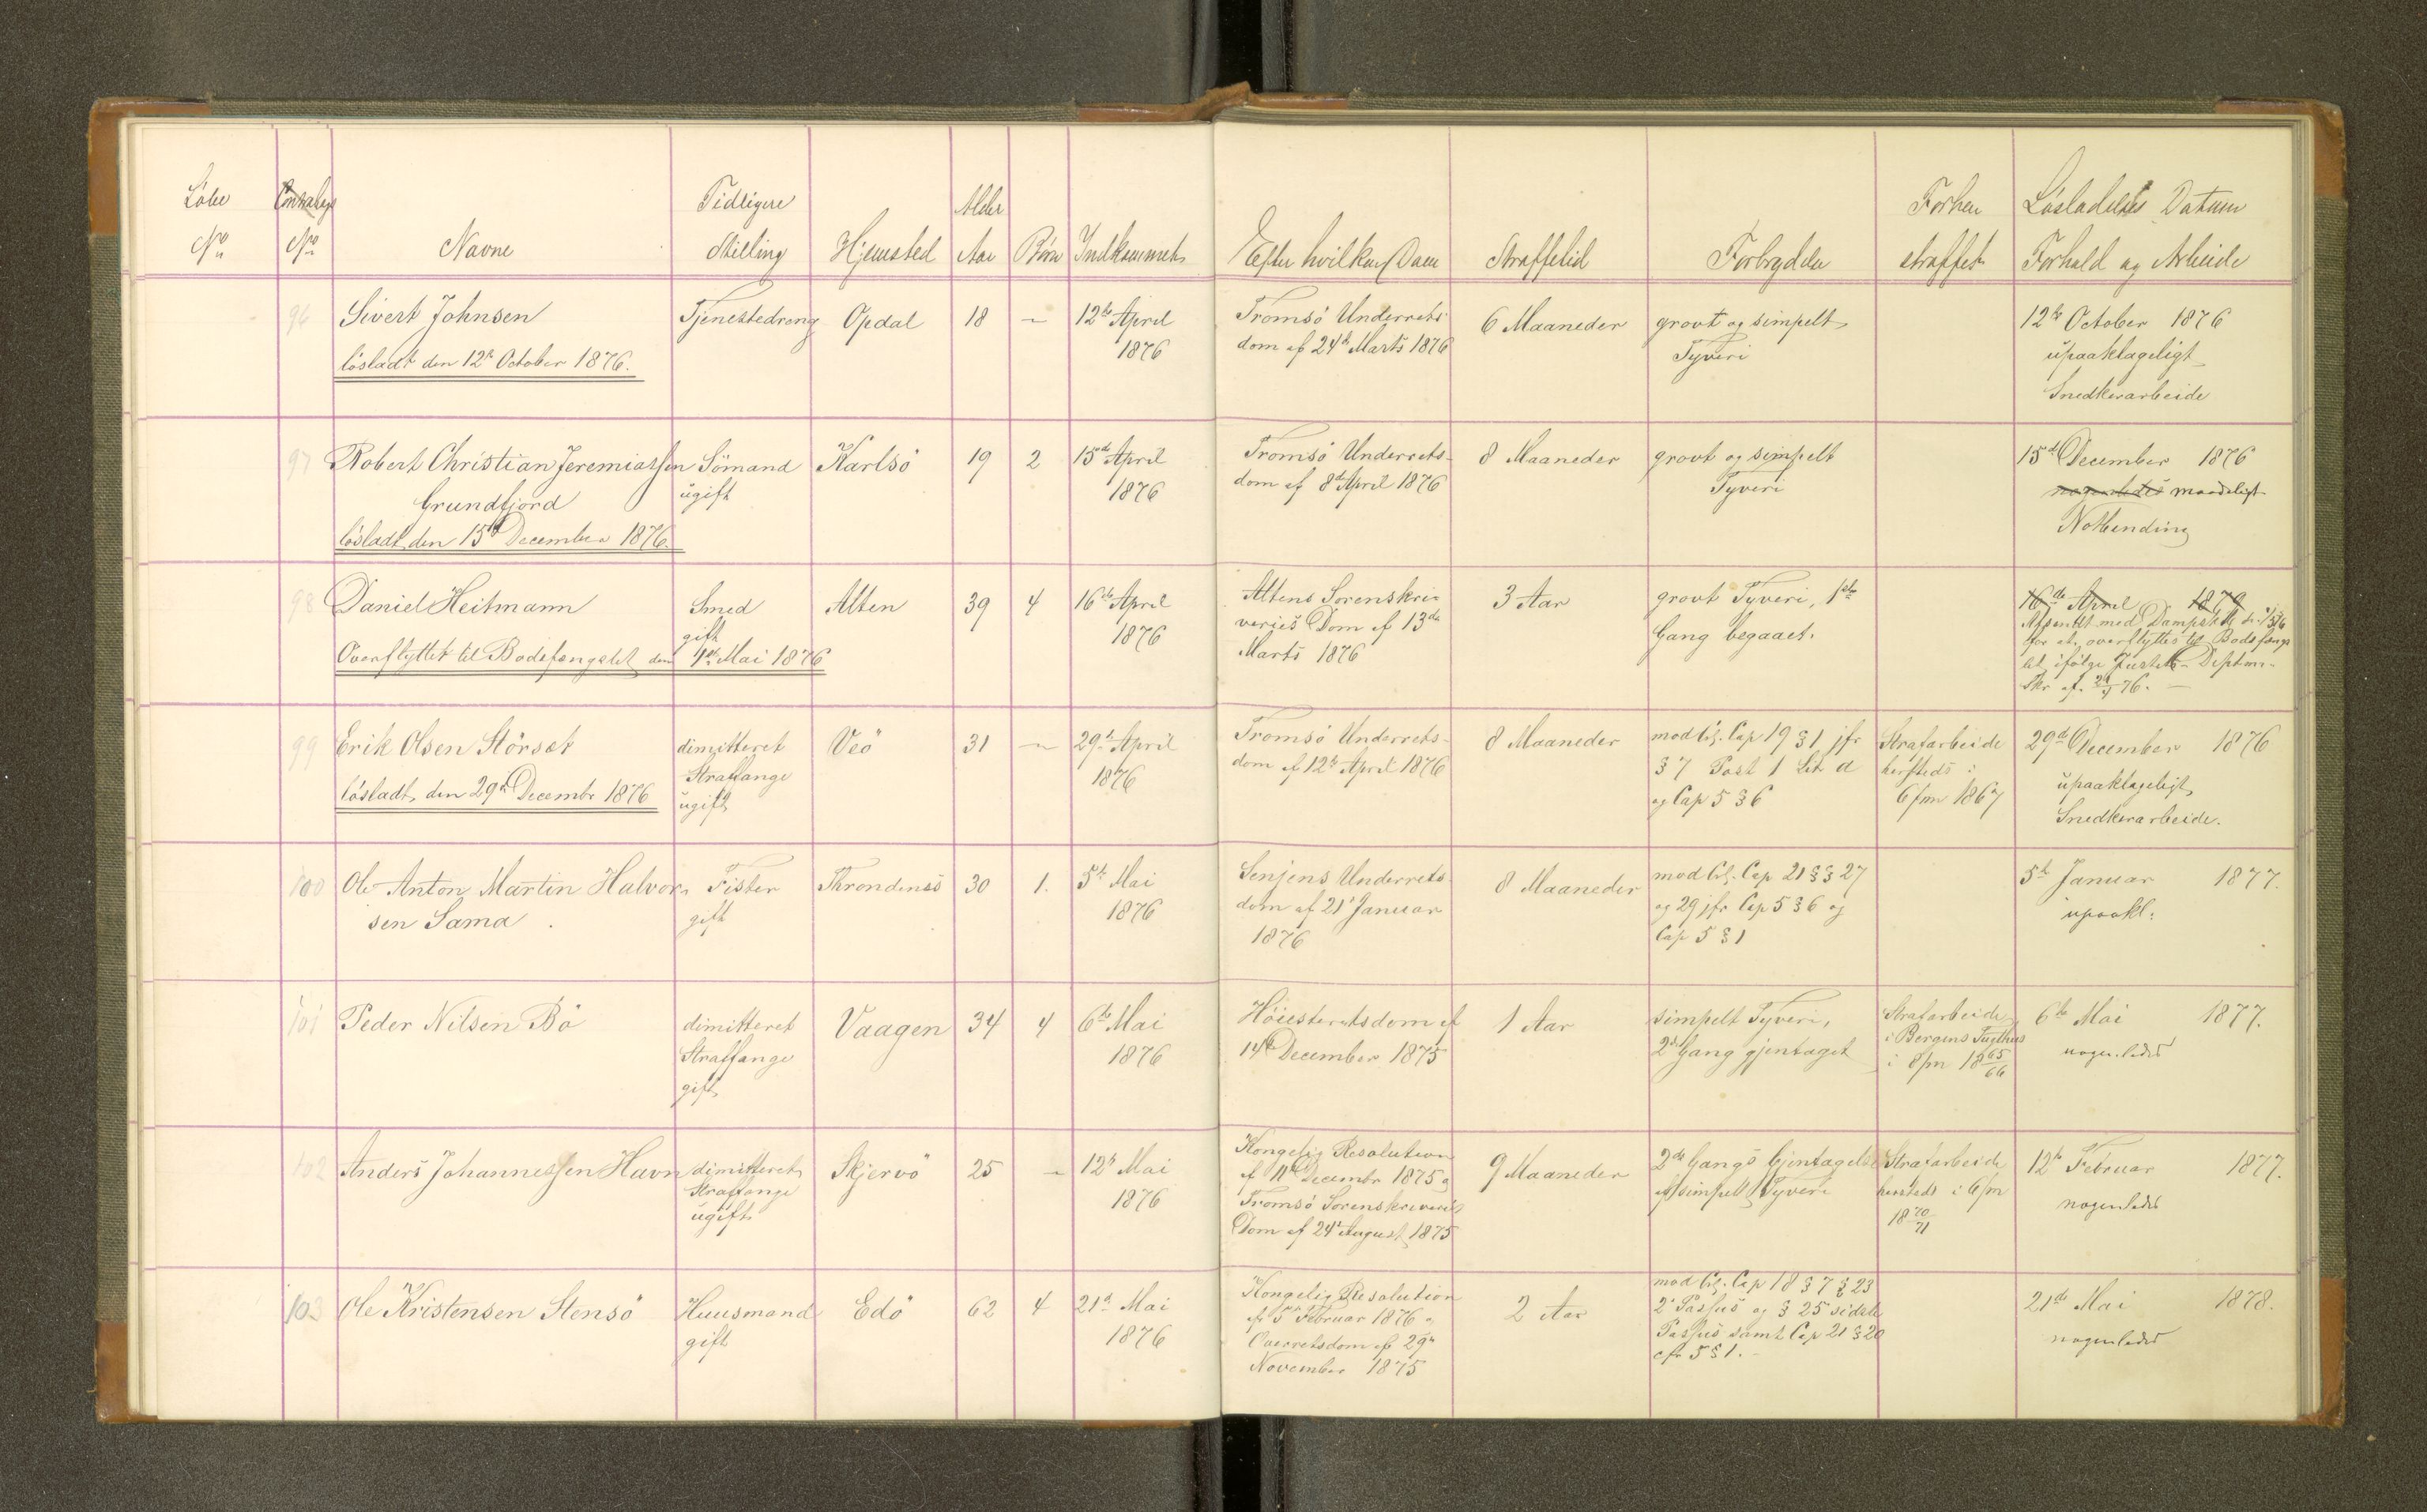 Løbe
No
No
Navne
Tidligere
Stilling
Hjemsted
Alder
Aar
Børn
Indkommet
Efter hvilken Dom
Straffetid
Forbrydelse
Forhen
straffet
Løsladelses Datum
Forhold og Arbeide
96
Sivert Johnsen
løsladt den 12te October 1876.
Tjenestedreng
Opdal
18
–
12te April
1876
Tromsö Underrets-
dom af 24de Marts 1876
6 Maaneder
grovt og simpelt
Tyveri
12te October 1876
upaaklageligt
Snedkerarbeide
97
Robert Christian Jeremiassen
Grundfjord
løsladt den 15de December 1876.
Sömand
ugift
Karlsö
19
2
15de April
1876
Tromsö Underrets-
dom af 8de April 1876
8 Maaneder
grovt og simpelt
Tyveri
15de December 1876
nogenledes maadeligt
Notbinding
98
Daniel Heitmann
Overflyttet til Bodsfængslet den 1ste Mai 1876
Smed
gift
Alten
39
4
16de April
1876
Altens Sorenskri-
veries Dom af 13de
Marts 1876
3 Aar
grovt Tyveri, 1ste
Gang begaaet.
16de April 1879
Afsendt med Dampsk.
for at overflyttes til Bodsfængs
let ifølge Justits-Deptem.
Skr af 24/4 76. –
99
Erik Olsen Störset
løsladt den 29de Decembr 1876
dimitteret
Straffange
ugift
Veö
31
–
29de April
1876
Tromsö Underrets-
dom af 12te April 1876
8 Maaneder
mod Crl. Cap 19 § 1 jfr
§ 7 Post 1 Litr d
og Cap 5 § 6
Strafarbeide
hersteds i
6/mn 1867
29de December 1876
upaaklageligt
Snedkerarbeide.
100
Ole Anton Martin Halvor-
sen Sama
Fisker
gift
Throndenes
30
1.
5te Mai
1876
Senjens Underrets-
dom af 21de Januar
1876
8 Maaneder
mod Crl. Cap 21 §§ 27
og 29 jfr Cap 5 § 6 og
Cap 5 § 1
5te Januar 1877.
upaakl:
101
Peder Nilsen Bö
dimitteret
Straffange
gift
Vaagen
34
4
6te Mai
1876
Höiesteretsdom af
14de December 1875
1 Aar
simpelt Tyveri,
2den Gang gjentaget
Strafarbeide
i Bergens Tugthus
i 8/m 1865/66
6te Mai 1877.
nogenledes
102
Anders Johannessen Havn
dimitteret
Straffange
ugift
Skjervö
25
–
12te Mai
1876
Kongelig Resolution
af 11te Decembr 1875 og
Tromsö Sorenskriveries
Dom af 24de August 1875
9 Maaneder
2den Gangs Gjentagelse
af simpelt Tyveri
Strafarbeide
hersteds i 6/m
1870/71
12te Februar 1877.
nogenledes
103
Ole Kristensen Stensö
Huusmand
gift
Edö
62
4
21de Mai
1876
Kongelig Resolution
af 5te Februar 1876 og
Overretsdom af 29de
November 1875
2 Aar
mod Crl. Cap 18 § 7 § 23
2 Passus og § 25 sidste
Passus samt Cap 21 § 20
cfr 5 § 1. –
21de Mai 1878.
nogenledes